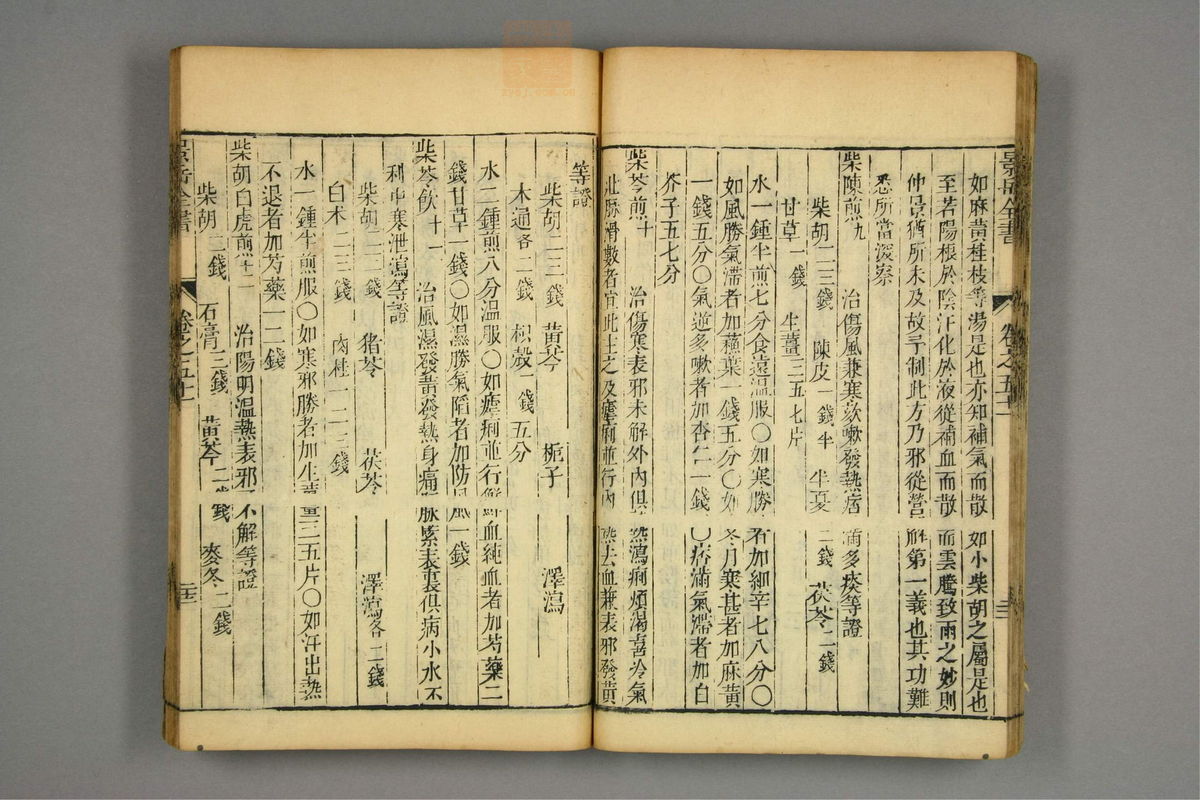 景岳全書 卷之五十一
如麻黃桂枝等湯是也亦知補氣而散如小柴胡之屬是也
至若陽根於陰汗化於液從補血而散而雲騰致雨之妙則
仲景猶所未及故予制此方乃邪從營解第一義也其功難
悉所當深察
柴陳煎九 治傷風兼寒欬嗽發熱痞滿多痰等證
柴胡二三錢 陳皮一錢半 半夏二錢 茯苓二錢
甘草一錢 生薑三五七片
水一鍾半煎七分食遠溫服〇如寒勝者加細辛七八分〇
如風勝氣滯者加蘇葉一錢五分〇如冬月寒甚者加麻黃
一錢五分〇氣逆多嗽者加杏仁一錢〇痞滿氣滯者加白
芥子五七分
柴芩煎十 治傷寒表邪未解外內俱熱瀉痢煩渴喜冷氣
壯脈滑數者宜此主之及瘧痢並行內熱去血兼表邪發黃
等證
柴胡二三錢 黃芩 梔子 澤瀉
木通各二錢 枳殼一錢五分
水二鍾煎八分溫服〇如瘧痢並行鮮血純血者加芍藥二
錢甘草一錢〇如濕勝氣陷者加防風一錢
柴苓飲十一 治風濕發黃發熱身痛脈緊表裏俱病小水不
利中寒泄瀉等證
柴胡二三錢 猪苓 茯苓 澤瀉各二錢
白朮二三錢 肉桂一二三錢
水一鍾半煎服〇如寒邪勝者加生薑三五片〇如汗出熱
不退者加芍藥一二錢
柴胡白虎煎十二 治陽明溫熱表邪不解等證
柴胡二錢 石膏三錢 黃芩二錢 麥冬二錢
景岳全書 卷之五十一